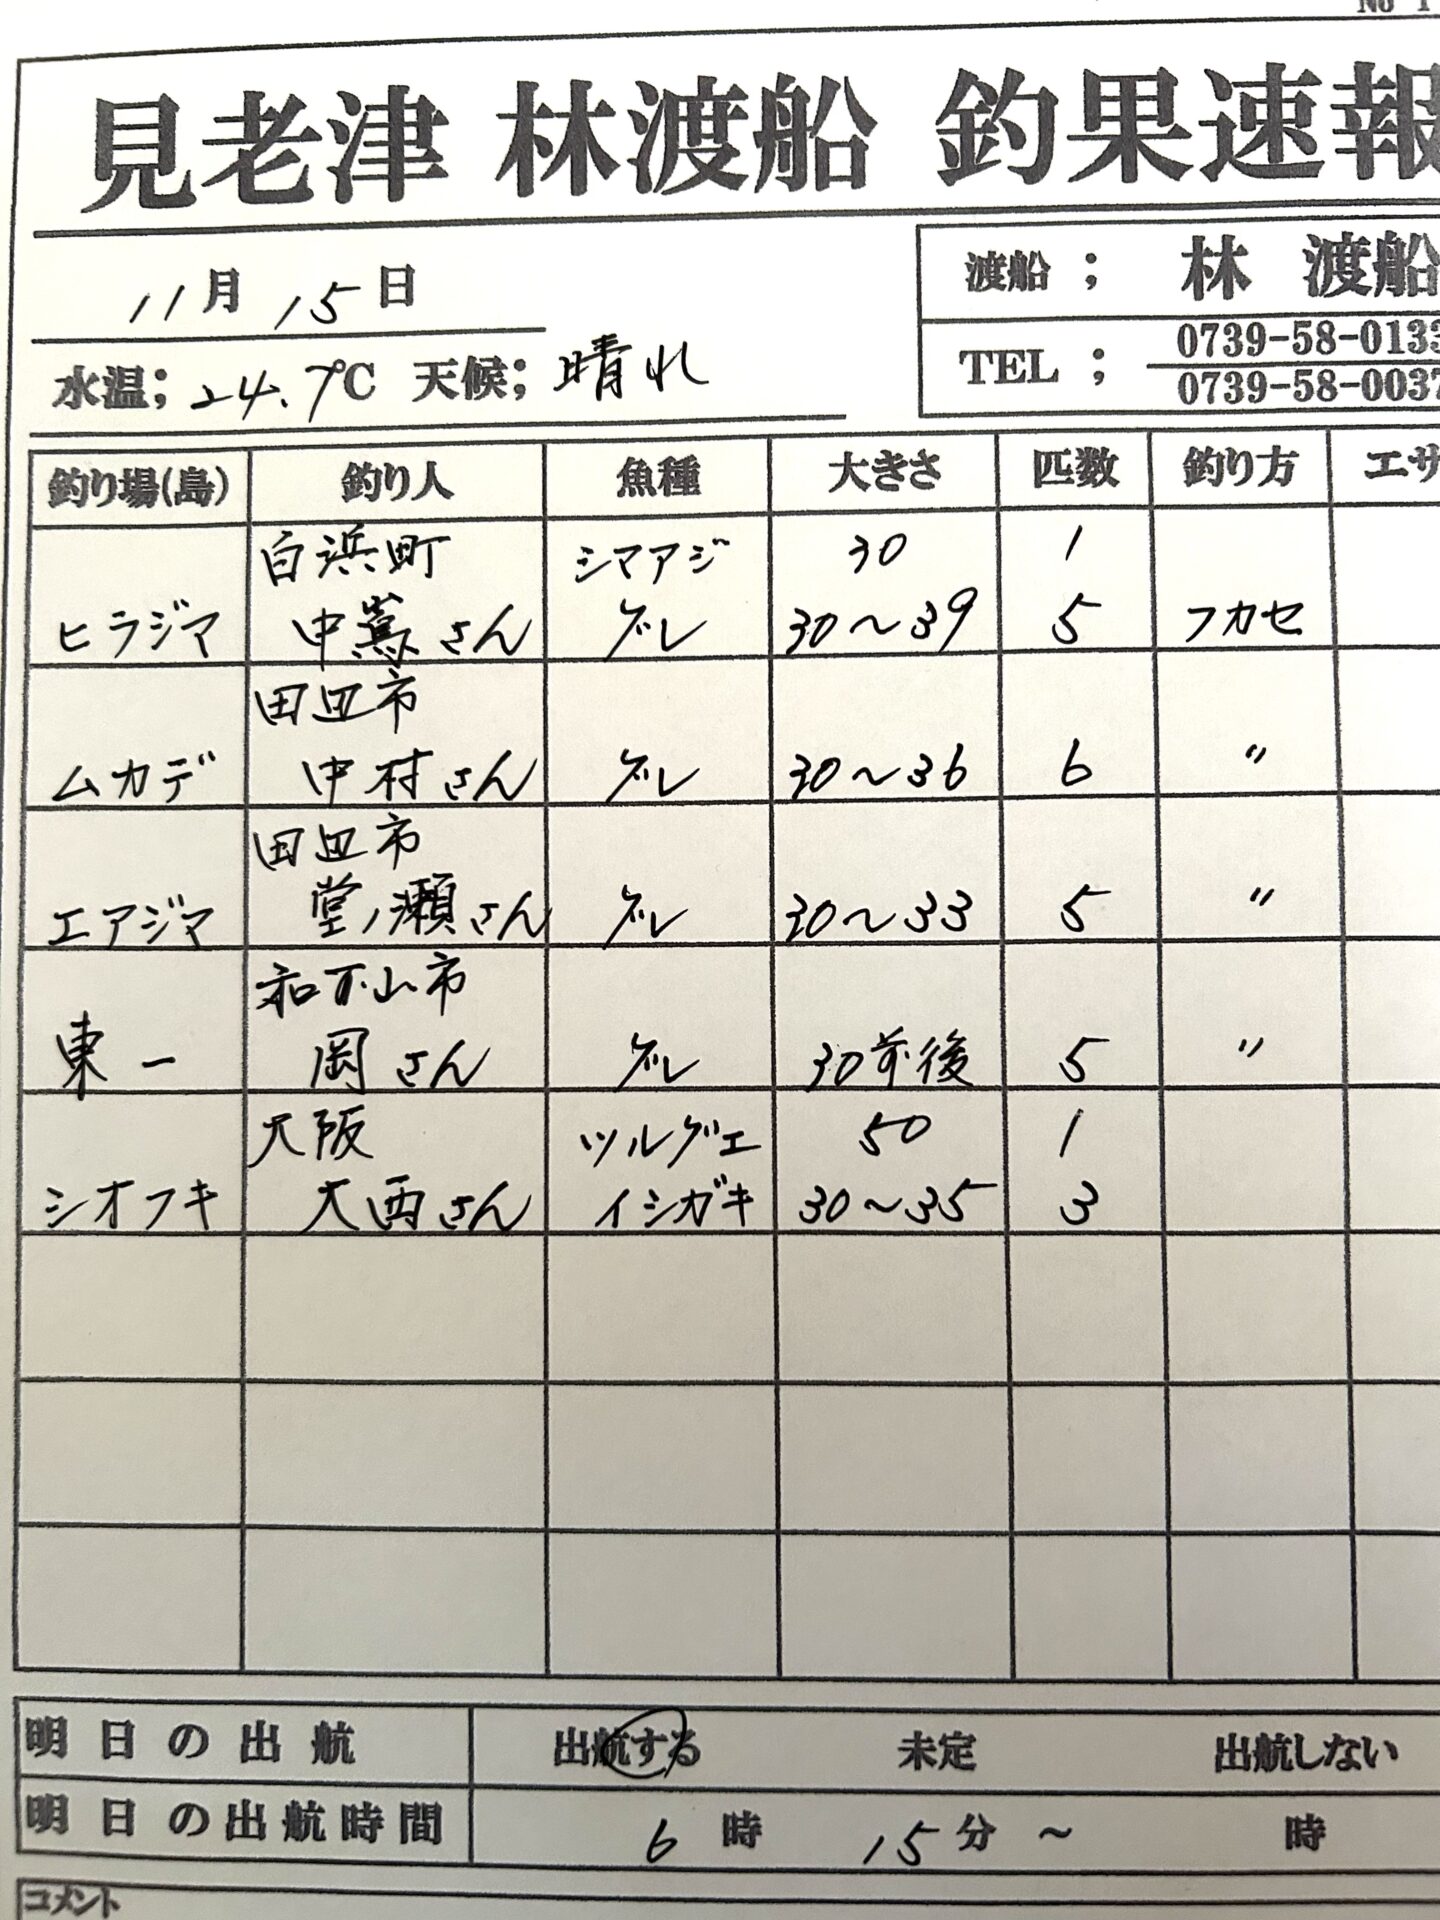 No 1
見老津 林渡船 釣果速報
11月 15日
渡船 ; 林 渡船
水温; 24.7℃ 天候; 晴れ
TEL ; 0739-58-0133
0739-58-0037
釣り場(島) 釣り人 魚種 大きさ 匹数 釣り方 エサ
白浜町 シマアジ 30 1
ヒラジマ 中嶌さん グレ 30〜39 5 フカセ
田辺市
ムカデ 中村さん グレ 30〜36 6 〃
田辺市
エアジマ 堂ノ瀬さん グレ 30〜33 5 〃
和歌山市
東一 岡さん グレ 30前後 5 〃
大阪 ツルグエ 50 1
シオフキ 大西さん イシガキ 30〜35 3
明日の出航 出航する 未定 出航しない
明日の出航時間 6時 15分 〜 時
コメント